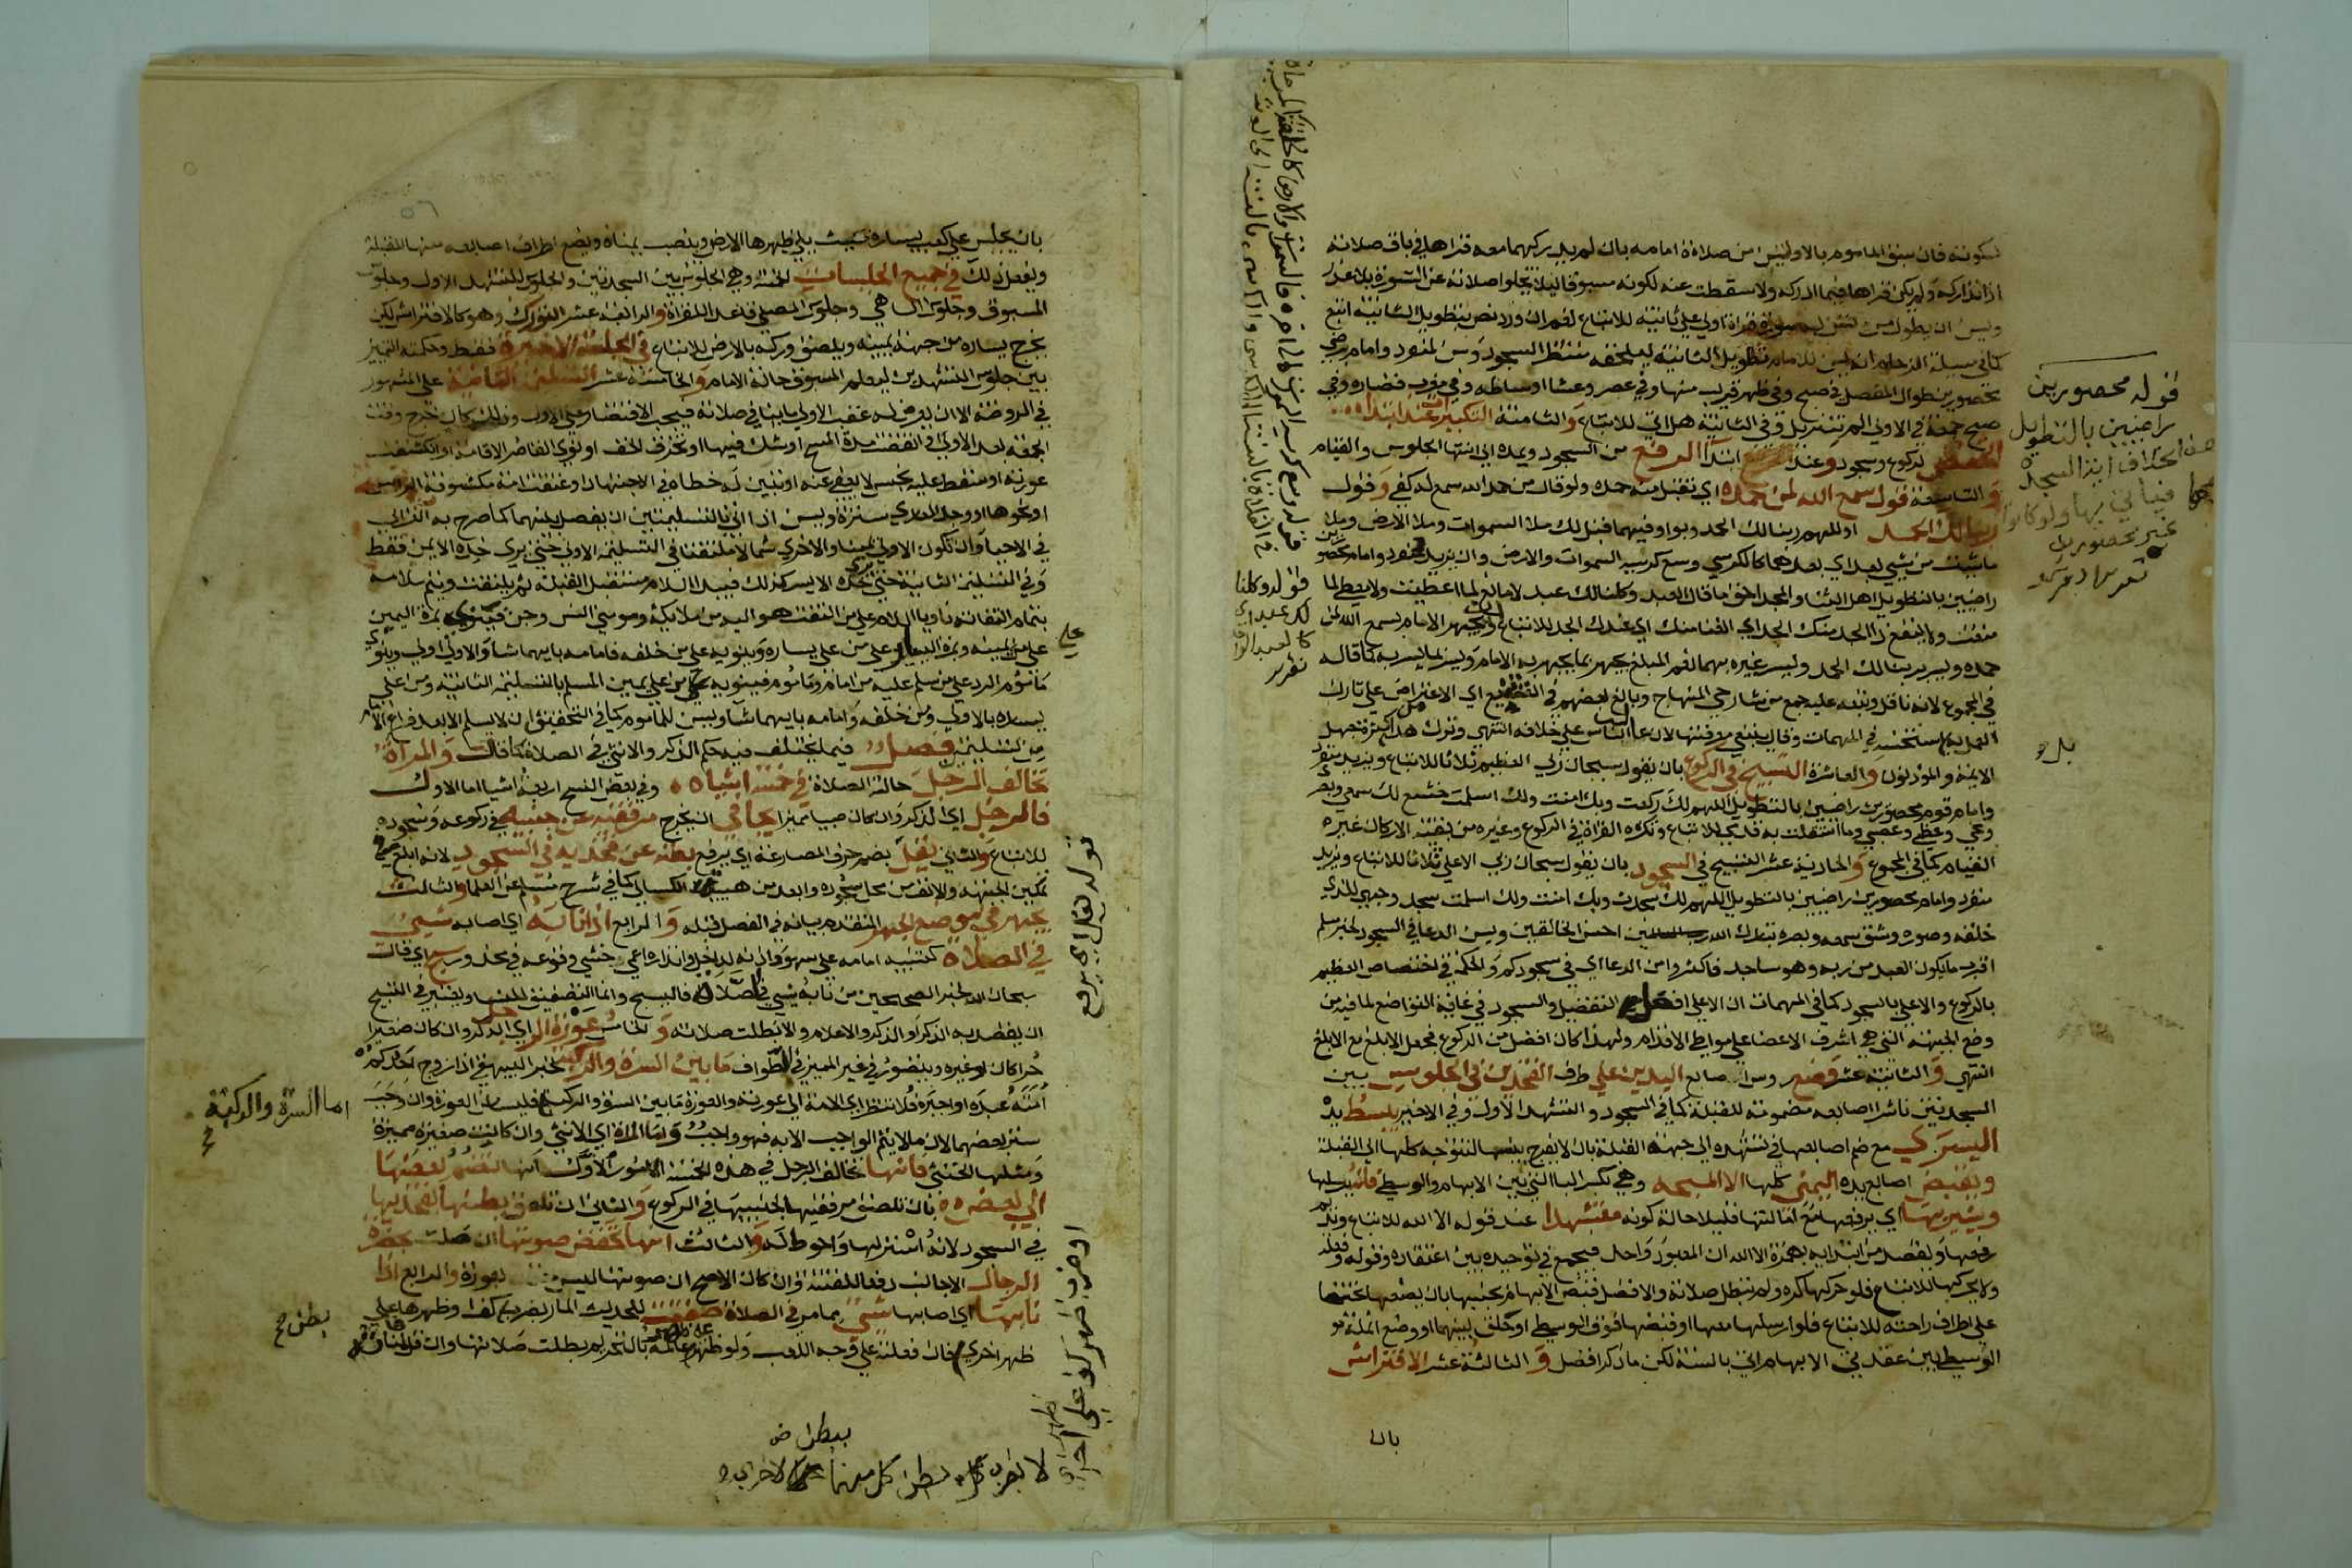 سكوته فان سبق الماموم بالاوليين من صلاة امامه بان لم يدركهما معه قراها في باقي صلاته
اذا تداركه ولم يكن قراها فيما ادركه ولا سقطت عنه لكونه مسبوقا ليلا تخلوا صلاته عن السورة بلا عذر
ويسن ان يطول من تسن له سورة قراة اولي علي ثانية للاتباع نعم ان ورد نص بتطويل الثانية اتبع
كما في مسيلة الزحام انه يسن للامام تطويل الثانية ليلحقه منتظر السجود وسن لمنفرد وامام
محصورين طوال المفصل في صبح وفي ظهر قريب منها وفي عصر وعشا اوساطه وفي مغرب قصاره وفي
صبح جمعة في الاولي الم تنزيل وفي الثانية هل اتي للاتباع والثامنة التكبيرات عند ابتداء
الخفض لركوع وسجود وعند ابتدا الرفع من السجود ويمده الي انتها الجلوس والقيام
والتاسعة قول سمع الله لمن حمده اي تقبل منه حمده ولو قال من حمد الله سمع له كفي وقول
ربنا لك الحمد او اللهم ربنا لك الحمد وبواو فيهما قبل لك ملا السموات وملا الارض وملا
ما شيت من شيي بعد اي بعدهما كالكرسي وسع كرسيه السموات والارض وان يزيد منفرد وامام محصورين
راضيين بالتطويل اهل الثنا والمجد احق ما قال العبد وكلنا لك عبد لا مانع لما اعطيت ولا معطي لما
منعت ولا ينفع ذا الجد منك الجد اي الغنا منك اي عندك الجد للاتباع ويجهر الامام بسمع الله لمن
حمده ويسر بربنا لك الحمد ويسر غيره بهما نعم المبلغ يجهر بما يجهر به الامام ويسر بما يسر به كما قاله
في المجموع لانه ناقل وتبعه عليه جمع من شارحي المنهاج وبالغ بعضهم في التشنيع اي الاعتراض علي تارك
العمل به استحسنه في المهمات وقال ينبغي معرفتها لان غالب الناس علي خلافه انتهي وترك هذا من كثرة جهل
الايمة والمؤذنون والعاشرة التسبيح في الركوع بان يقول سبحان ربي العظيم ثلاثا للاتباع ويزيد منفرد
وامام قوم محصورين راضيين بالتطويل اللهم لك ركعت وبك امنت ولك اسلمت خشع لك سمعي وبصري
ومخي وعظمي وعصبي وما استقلت به قدمي للاتباع وتكره القراة في الركوع وغيره من بقية الاركان غير
القيام كما في المجموع والحادية عشر التسبيح في السجود بان يقول سبحان ربي الاعلي ثلاثا للاتباع ويزيد
منفرد وامام محصورين راضيين بالتطويل اللهم لك سجدت وبك امنت ولك اسلمت سجد وجهي للذي
خلقه وصوره وشق سمعه وبصره تبارك الله احسن الخالقين ويسن الدعا في السجود لخبر مسلم
اقرب ما يكون العبد من ربه وهو ساجد فاكثروا من الدعا اي في سجودكم والحكمة في اختصاص العظيم
بالركوع والاعلي بالسجود كما في المهمات ان الاعلي افعل التفضيل والسجود في غاية التواضع لما فيه من
وضع الجبهة التي هي اشرف الاعضا علي مواطي الاقدام ولهذا كان افضل من الركوع فجعل الابلغ مع الابلغ
انتهي والثانية عشر وضع روس اصابع اليدين علي طرف الفخذين في الجلوس بين
السجدتين ناشرا اصابعه مضمومة للقبلة كما في السجود والتشهد الاول وفي الاخير يبسط يده
اليسري مع ضم اصابعها في تشهده الي جهة القبلة بان لا يفرج بينها لتتوجه كلها الي القبلة
ويقبض اصابع يده اليمني كلها الا المسبحة وهي بكسر البا التي بين الابهام والوسطي فانه يرسلها
ويشير بها اي يرفعها مع امالتها قليلا حالة كونه متشهدا عند قوله الا الله للاتباع ويديم
رفعها ويقصد من ابتدايه بهمزة الا الله ان المعبود واحد فيجمع في توحيده بين اعتقاده وقوله وفعله
ولا يحركها للاتباع فلو حركها كره ولم تبطل صلاته والافضل قبض الابهام بجنبها بان يضعها تحتها
علي طرف راحته للاتباع فلو ارسلها معها او قبضها فوق الوسطي او حلق بينهما او وضع انملة
الوسطي بين عقدتي الابهام اتي بالسنة لكن ما ذكر افضل والثالثة عشر الافتراش
بان
قوله محصورين
راضيين بالتطويل
غير محصورين
قوله وكلنا
لك عبد
بان يجلس علي كعب يساره بحيث يلي ظهرها الارض وينصب يمناه ويضع اطراف اصابعه منها للقبلة
ويفعل ذلك في جميع الجلسات الخمسة وهي الجلوس بين السجدتين والجلوس للتشهد الاول وجلوس
المسبوق وجلوس الساهي وجلوس المصلي قاعدا للقراة والرابعة عشر التورك وهو كالافتراش لكن
يخرج يساره من جهة يمينه ويلصق وركه بالارض للاتباع في الجلسة الاخيرة فقط وحكمته التمييز
بين جلوس التشهدين ليعلم المسبوق حالة الامام والخامسة عشر التسليمة الثانية علي المشهور
في الروضة الا ان يعرض له عقب الاولي ما ينافي صلاته فيجب الاقتصار علي الاولي وذلك كان خرج وقت
الجمعة بعد الاولي او انقضت مدة المسح او شك فيها او تخرق الخف او نوي القاصر الاقامة او انكشفت
عورته او سقط عليه نجس لا يعفي عنه او تبين له خطاه في الاجتهاد او عتقت امة مكشوفة الراس
او نحوها او وجد العاري سترة ويسن اذا اتي بالتسليمتين ان يفصل بينهما كما صرح به الغزالي
في الاحيا وان تكون الاولي يمينا والاخري شمالا ملتفتا في التسليمة الاولي حتي يري خده الايمن فقط
وفي التسليمة الثانية حتي يري خده الايسر كذلك فيبدا السلام مستقبل القبلة ثم يلتفت ويتم سلامه
بتمام التفاته ناويا السلام علي من التفت هو اليه من ملايكة ومومني انس وجن فينوي بمرة اليمين
علي من يمينه وبمرة اليسار علي من علي يساره وينويه علي من خلفه وامامه بايهما شا والاولي اولي وينوي
ماموم الرد علي من سلم عليه من امام وماموم فينويه من علي يمين المسلم بالتسليمة الثانية ومن علي
يساره بالاولي ومن خلفه وامامه بايهما شا ويسن للماموم كما في التحقيق ان لا يسلم الا بعد فراغ الامام
من تسليمتيه فصل فيما يختلف فيه حكم الذكر والانثي في الصلاة كما قال والمراة
تخالف الرجل حالة الصلاة في خمسة اشياء وفي بعض النسخ اربعة اشيا اما الاول
فالرجل اي الذكر وان كان صبيا مميزا يجافي اي يخرج مرفقيه عن جنبيه في ركوعه وسجوده
للاتباع والثاني يقل بضم حرف المضارعة اي يرفع بطنه عن فخذيه في السجود لانه ابلغ في
تمكين الجبهة والانف من محل سجوده وابعد من هيية الكسالي كما في شرح مسلم عن العلما والثالث
يجهر في موضع الجهر المتقدم بيانه في الفصل قبله والرابع اذا نابه اي اصابه شيي
في الصلاة كتنبيه امامه علي سهو واذنه لداخل وانذاره اعمي خشي وقوعه في محذور سبح اي قال
سبحان الله لخبر الصحيحين من نابه شيي في صلاته فليسبح وانما التصفيق للنسا ويعتبر في التسبيح
ان يقصد به الذكر او الذكر والاعلام والا بطلت صلاته والخامس عورة الرجل اي الذكر وان كان صغيرا
حرا كان او غيره ويتصور في غير المميز في الطواف ما بين السرة والركبة لخبر البيهقي اذا زوج احدكم
امته عبده او اجيره فلا تنظر اي الامة الي عورته والعورة ما بين السرة والركبة فليسا من العورة وان وجب
ستر بعضهما لان ما لا يتم الواجب الا به فهو واجب واما المراة اي الانثي وان كانت صغيرة مميزة
ومثلها الخنثي فانها تخالف الرجل في هذه الخمسة الامور الاول انها تضم بعضها
الي بعض بان تلصق مرفقيها لجنبيها في الركوع والثاني ان تلصق بطنها بفخذيها
في السجود لانه استر لها واحوط له والثالث انها تخفض صوتها ان صلت بحضرة
الرجال الاجانب دفعا للفتنة وان كان الاصح ان صوتها ليس بعورة والرابع اذا
نابها اي اصابها شيي مما مر في الصلاة صفقت للحديث المار بضرب كف او ظهرها علي
ظهر اخري فان فعلته علي وجه اللعب ولو ظهرا عالمة بالتحريم بطلت صلاتها وان قل المنافاته
علي
قوله يقل اي يرفع
اما السرة والركبة
بطن
او ضرب ظهر كف علي
ظهر اخري
لا بضرب بطن كل منهما علي الاخري